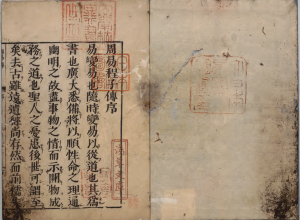 周易程子傳序
易變易也隨時變易以從道也其爲
書也廣大悉備將以順性命之理通
幽明之故盡事物之情而示開物成
務之道也聖人之憂患後世可謂至
矣去古雖遠遺經尚存然而前儒